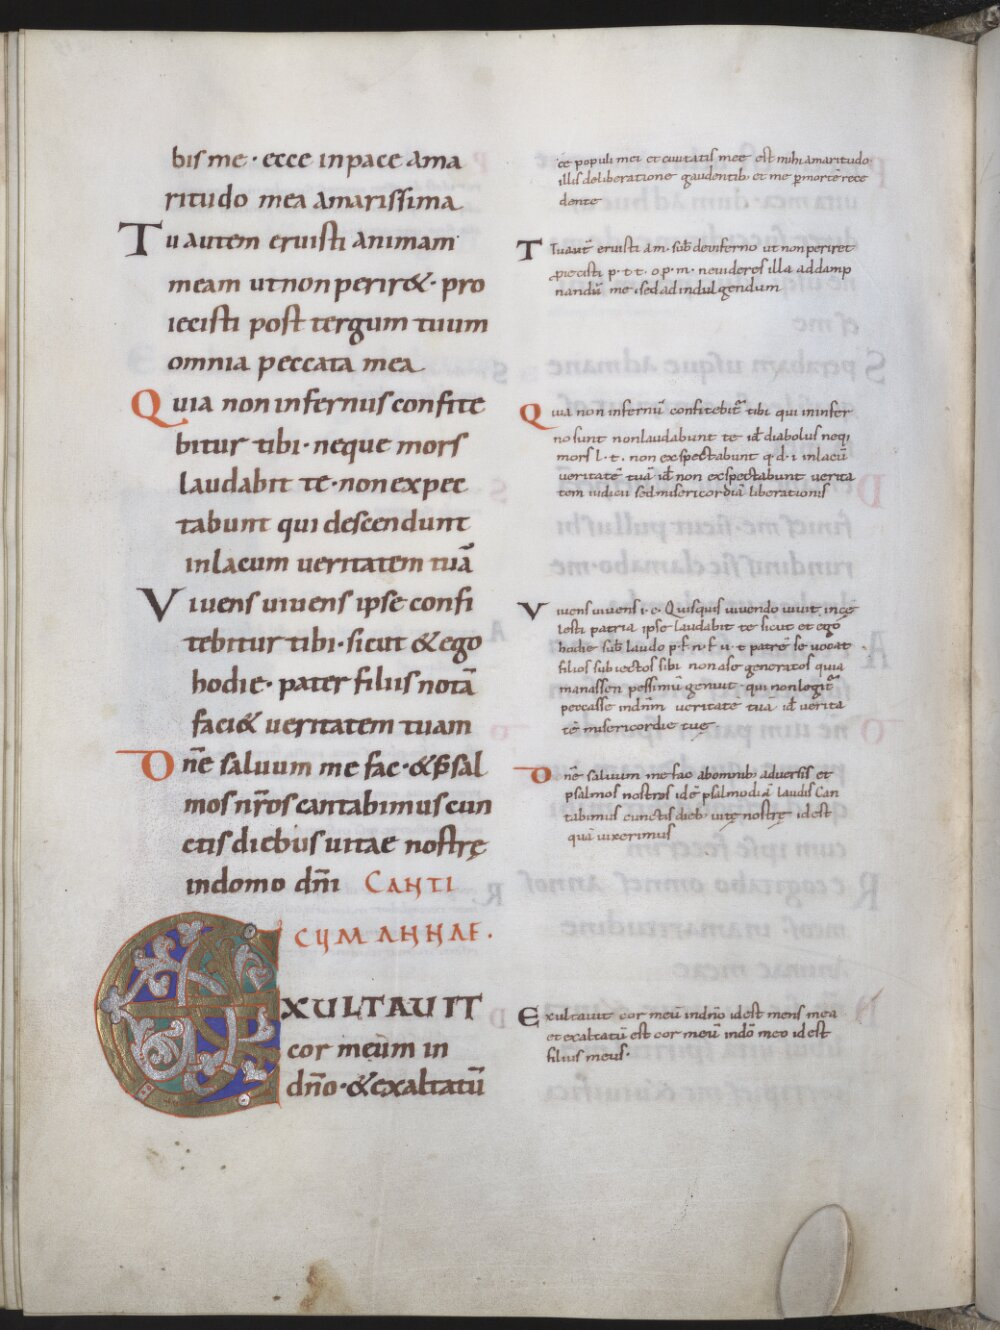 bis me · ecce in pace ama
ritudo mea amarissima
Tu autem eruisti animam
meam ut non perir& · pro
iecisti post tergum tuum
omnia peccata mea
Quia non infernus confite
bitur tibi · neque mors
laudabit te · non expec
tabunt qui descendunt
in lacum ueritatem tuā
Viuens uiuens ipse confi
tebitur tibi · sicut & ego
hodie · pater filiis notā
faci& ueritatem tuam
Dñe saluum me fac · & psal
mos nr̄os cantabimus cun
ctis diebus uitae nostrę
in domo dn̄i CANTI
CUM ANNAE ·
EXULTAUIT
cor meum in
dn̄o · & exaltatū
ce populi mei et ciuitatis mee est mihi amaritudo
illis de liberatione gaudentib; et me p̱ morte rece
dente
Tu aut̄ eruisti a·m· sub̄ de inferno ut non periret
ꝓiecisti p·t·t· o·p·m· ne uideres illa ad damp
nandū me · sed ad indulgendum
Quia non infernū confitebit᷑ tibi qui in infer
no sunt non laudabunt te id̄ diabolus neqi
mors l·t· non exspectabunt q·d·i in lacū
ueritatē tuā id̄ non exspectabunt uerita
tem iudicii sed misericordiā liberationis
Viuens uiuens i·e· Quisquis uiuendo uiuit in cę
lesti patria ipse laudabit te sicut et ego
hodie sub̄ laudo p·f·n·f·u·t patrē se uocat
filios subiectos sibi non a se generatos quia
manassen pessimū genuit · qui non legit᷑
peccasse in dnīm ueritate tua id̄ uerita
tē misericordie tuę ·
Dñe saluum me fac ab omnib; aduersis et
psalmos nostros idē psalmodiā laudis can
tabimus cunctis dieb; uitę nostrę id est
quā uixerimus
Exultauit cor meū in dn̄o id est mens mea
et exaltatū est cor meū in dō meo id est
filius meus ·